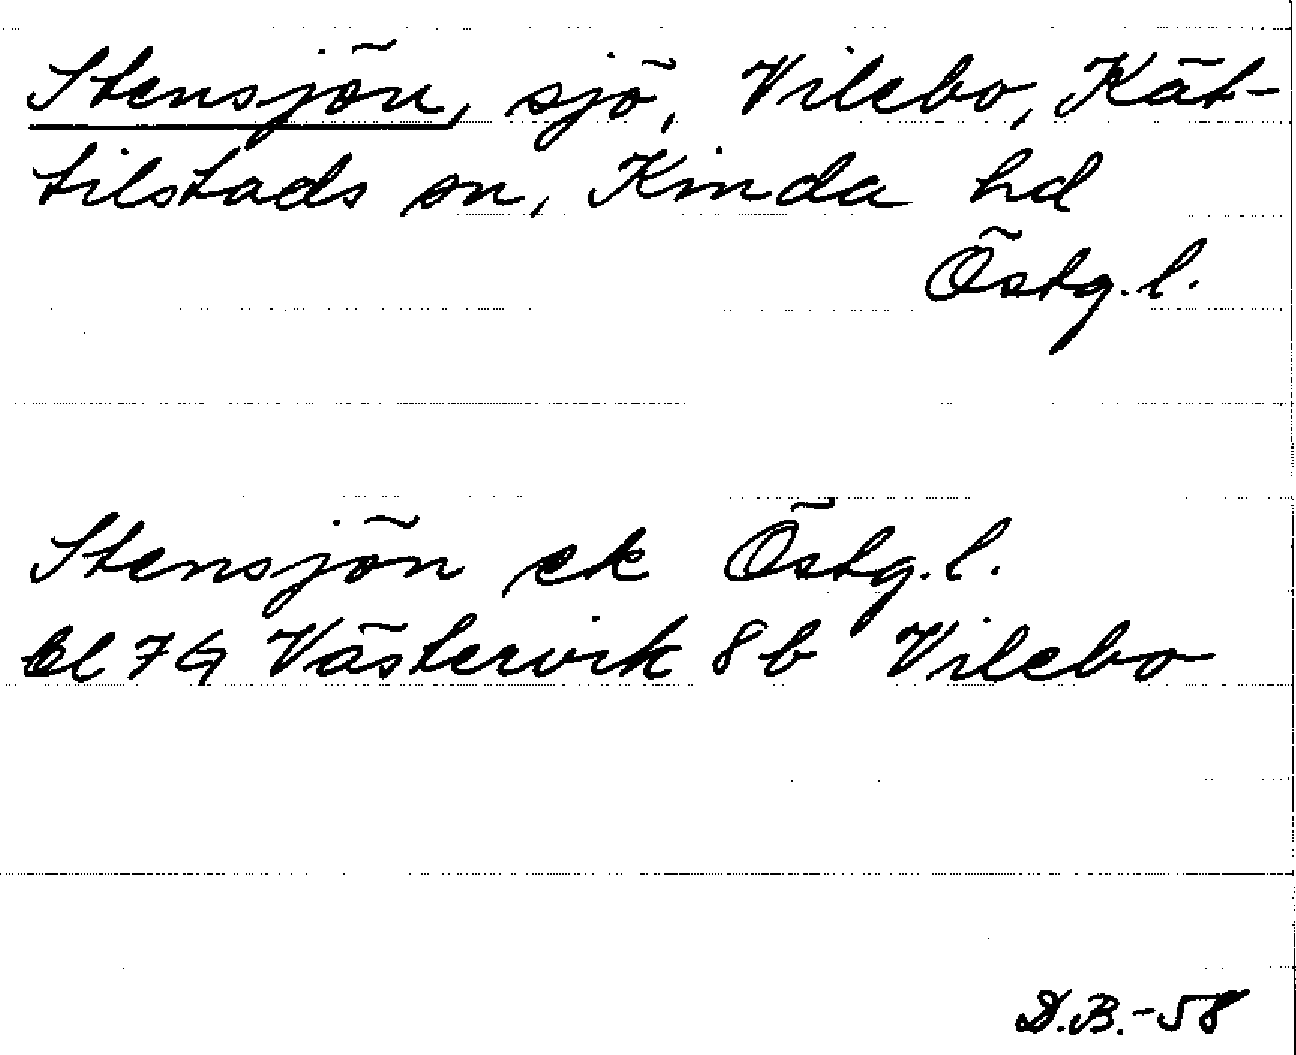 Stensjön, sjö, Vilebo, Kät-
tilstads sn, Kinda hd
Östg.l.
Stensjön ek Östg.l.
bl 7G Västervik 8b Vilebo
D.B.-58